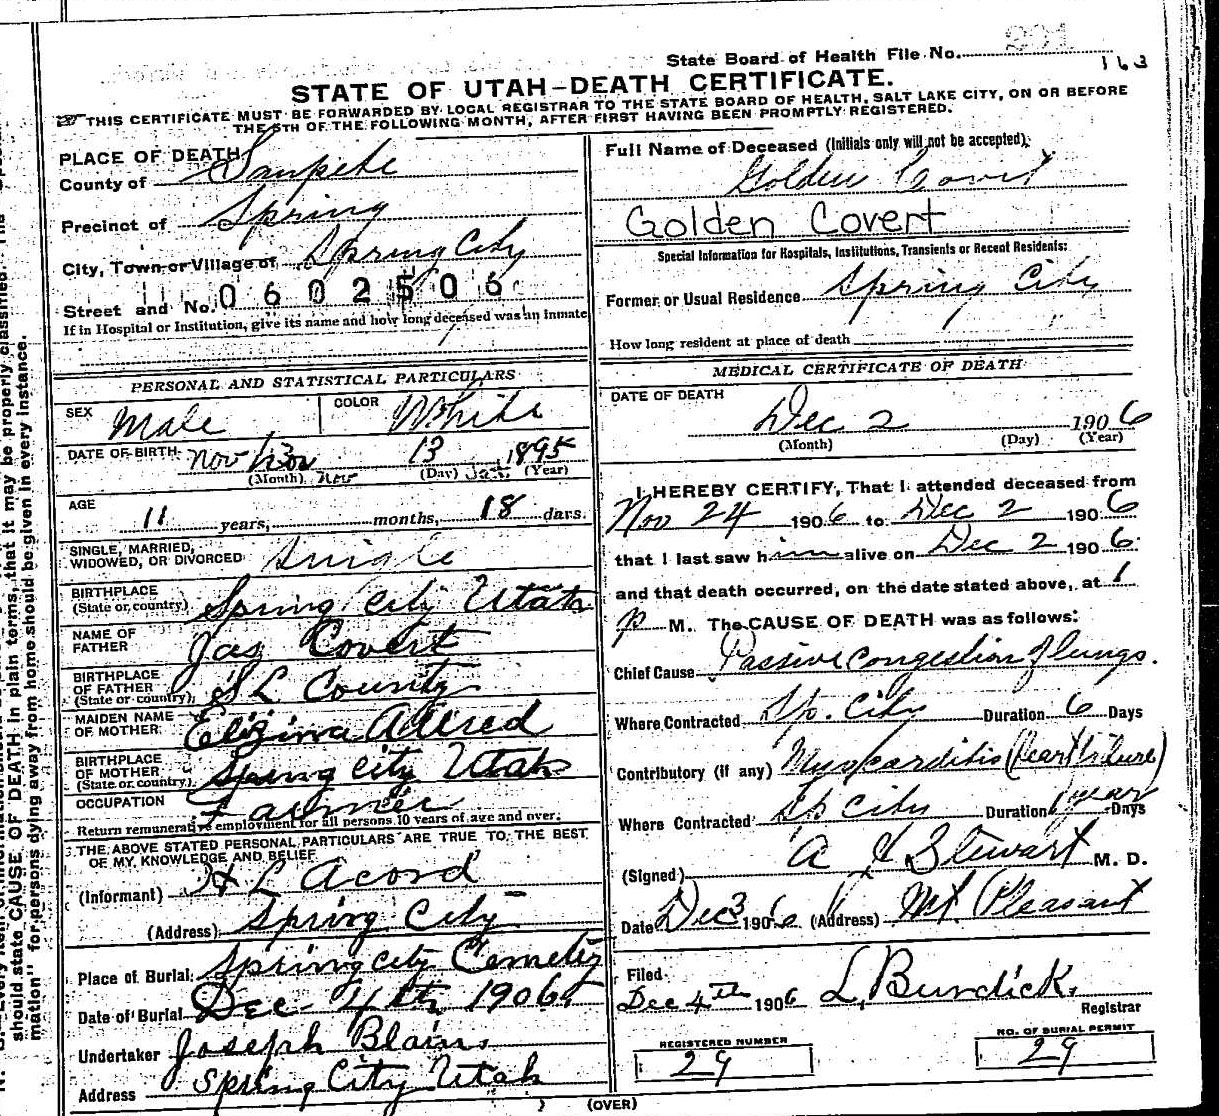 State Board of Health File No. 201
163
STATE OF UTAH-DEATH CERTIFICATE.
THIS CERTIFICATE MUST BE FORWARDED BY LOCAL REGISTRAR TO THE STATE BOARD OF HEALTH, SALT LAKE CITY, ON OR BEFORE
THE 5TH OF THE FOLLOWING MONTH, AFTER FIRST HAVING BEEN PROMPTLY REGISTERED.
PLACE OF DEATH
County of Sanpete
Precinct of Spring
City, Town or Village of Spring City
Street and No. 0602506
If in Hospital or Institution, give its name and how long deceased was an inmate
PERSONAL AND STATISTICAL PARTICULARS
SEX Male COLOR White
DATE OF BIRTH Nov 13 1895
(Month) Nov (Day) (Year)
AGE 11 years, months, 18 days.
SINGLE, MARRIED,
WIDOWED, OR DIVORCED Single
BIRTHPLACE
(State or country) Spring City Utah
NAME OF
FATHER Jas Covert
BIRTHPLACE
OF FATHER
(State or country) S L County
MAIDEN NAME
OF MOTHER Elizina Allred
BIRTHPLACE
OF MOTHER
(State or country) Spring City Utah
OCCUPATION Farmer
Return remunerative employment for all persons 10 years of age and over.
THE ABOVE STATED PERSONAL PARTICULARS ARE TRUE TO THE BEST
OF MY KNOWLEDGE AND BELIEF
(Informant) H L Acord
(Address) Spring City
Place of Burial: Spring city Cemetery
Date of Burial Dec 4th 1906
Undertaker Joseph Blain
Address Spring City Utah
Full Name of Deceased (Initials only will not be accepted):
Golden Covert
Golden Covert
Special Information for Hospitals, Institutions, Transients or Recent Residents:
Former or Usual Residence Spring City
How long resident at place of death
MEDICAL CERTIFICATE OF DEATH
DATE OF DEATH
Dec 2 1906
(Month) (Day) (Year)
I HEREBY CERTIFY, That I attended deceased from
Nov 24 1906 to Dec 2 1906
that I last saw him alive on Dec 2 1906
and that death occurred, on the date stated above, at 1
P M. The CAUSE OF DEATH was as follows:
Chief Cause Passive congestion of lungs.
Where Contracted Sp. City Duration 6 Days
Contributory (if any) Myocarditis (heart failure)
Where Contracted Sp City Duration 1 year Days
(Signed) A Stewart M. D.
Date Dec 3 1906 (Address) Mt. Pleasant
Filed
Dec 4th 1906 L, Burdick.
Registrar
REGISTERED NUMBER
29
NO. OF BURIAL PERMIT
29
(OVER)
should state CAUSE OF DEATH in plain terms, that it may be properly classified. The
mation" for persons dying away from home should be given in every instance.